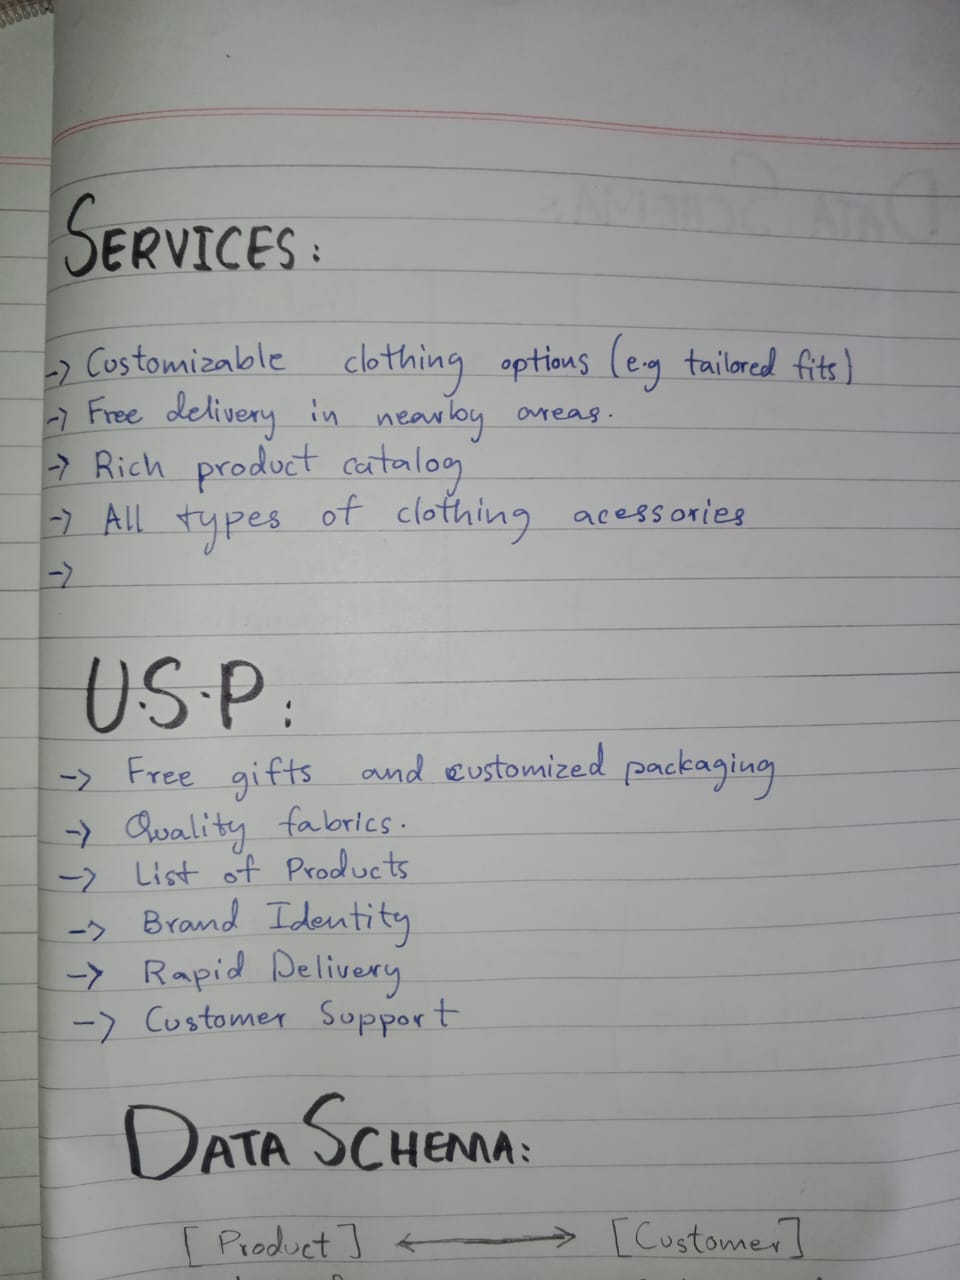 SERVICES:
-> Costomizable clothing options (e.g tailored fits)
-> Free delivery in nearby areas.
-> Rich product catalog
-> All types of clothing acessories
->
U.S.P:
-> Free gifts and customized packaging
-> Quality fabrics.
-> List of Products
-> Brand Identity
-> Rapid Delivery
-> Customer Support
DATA SCHEMA:
[Product] <-> [Customer]